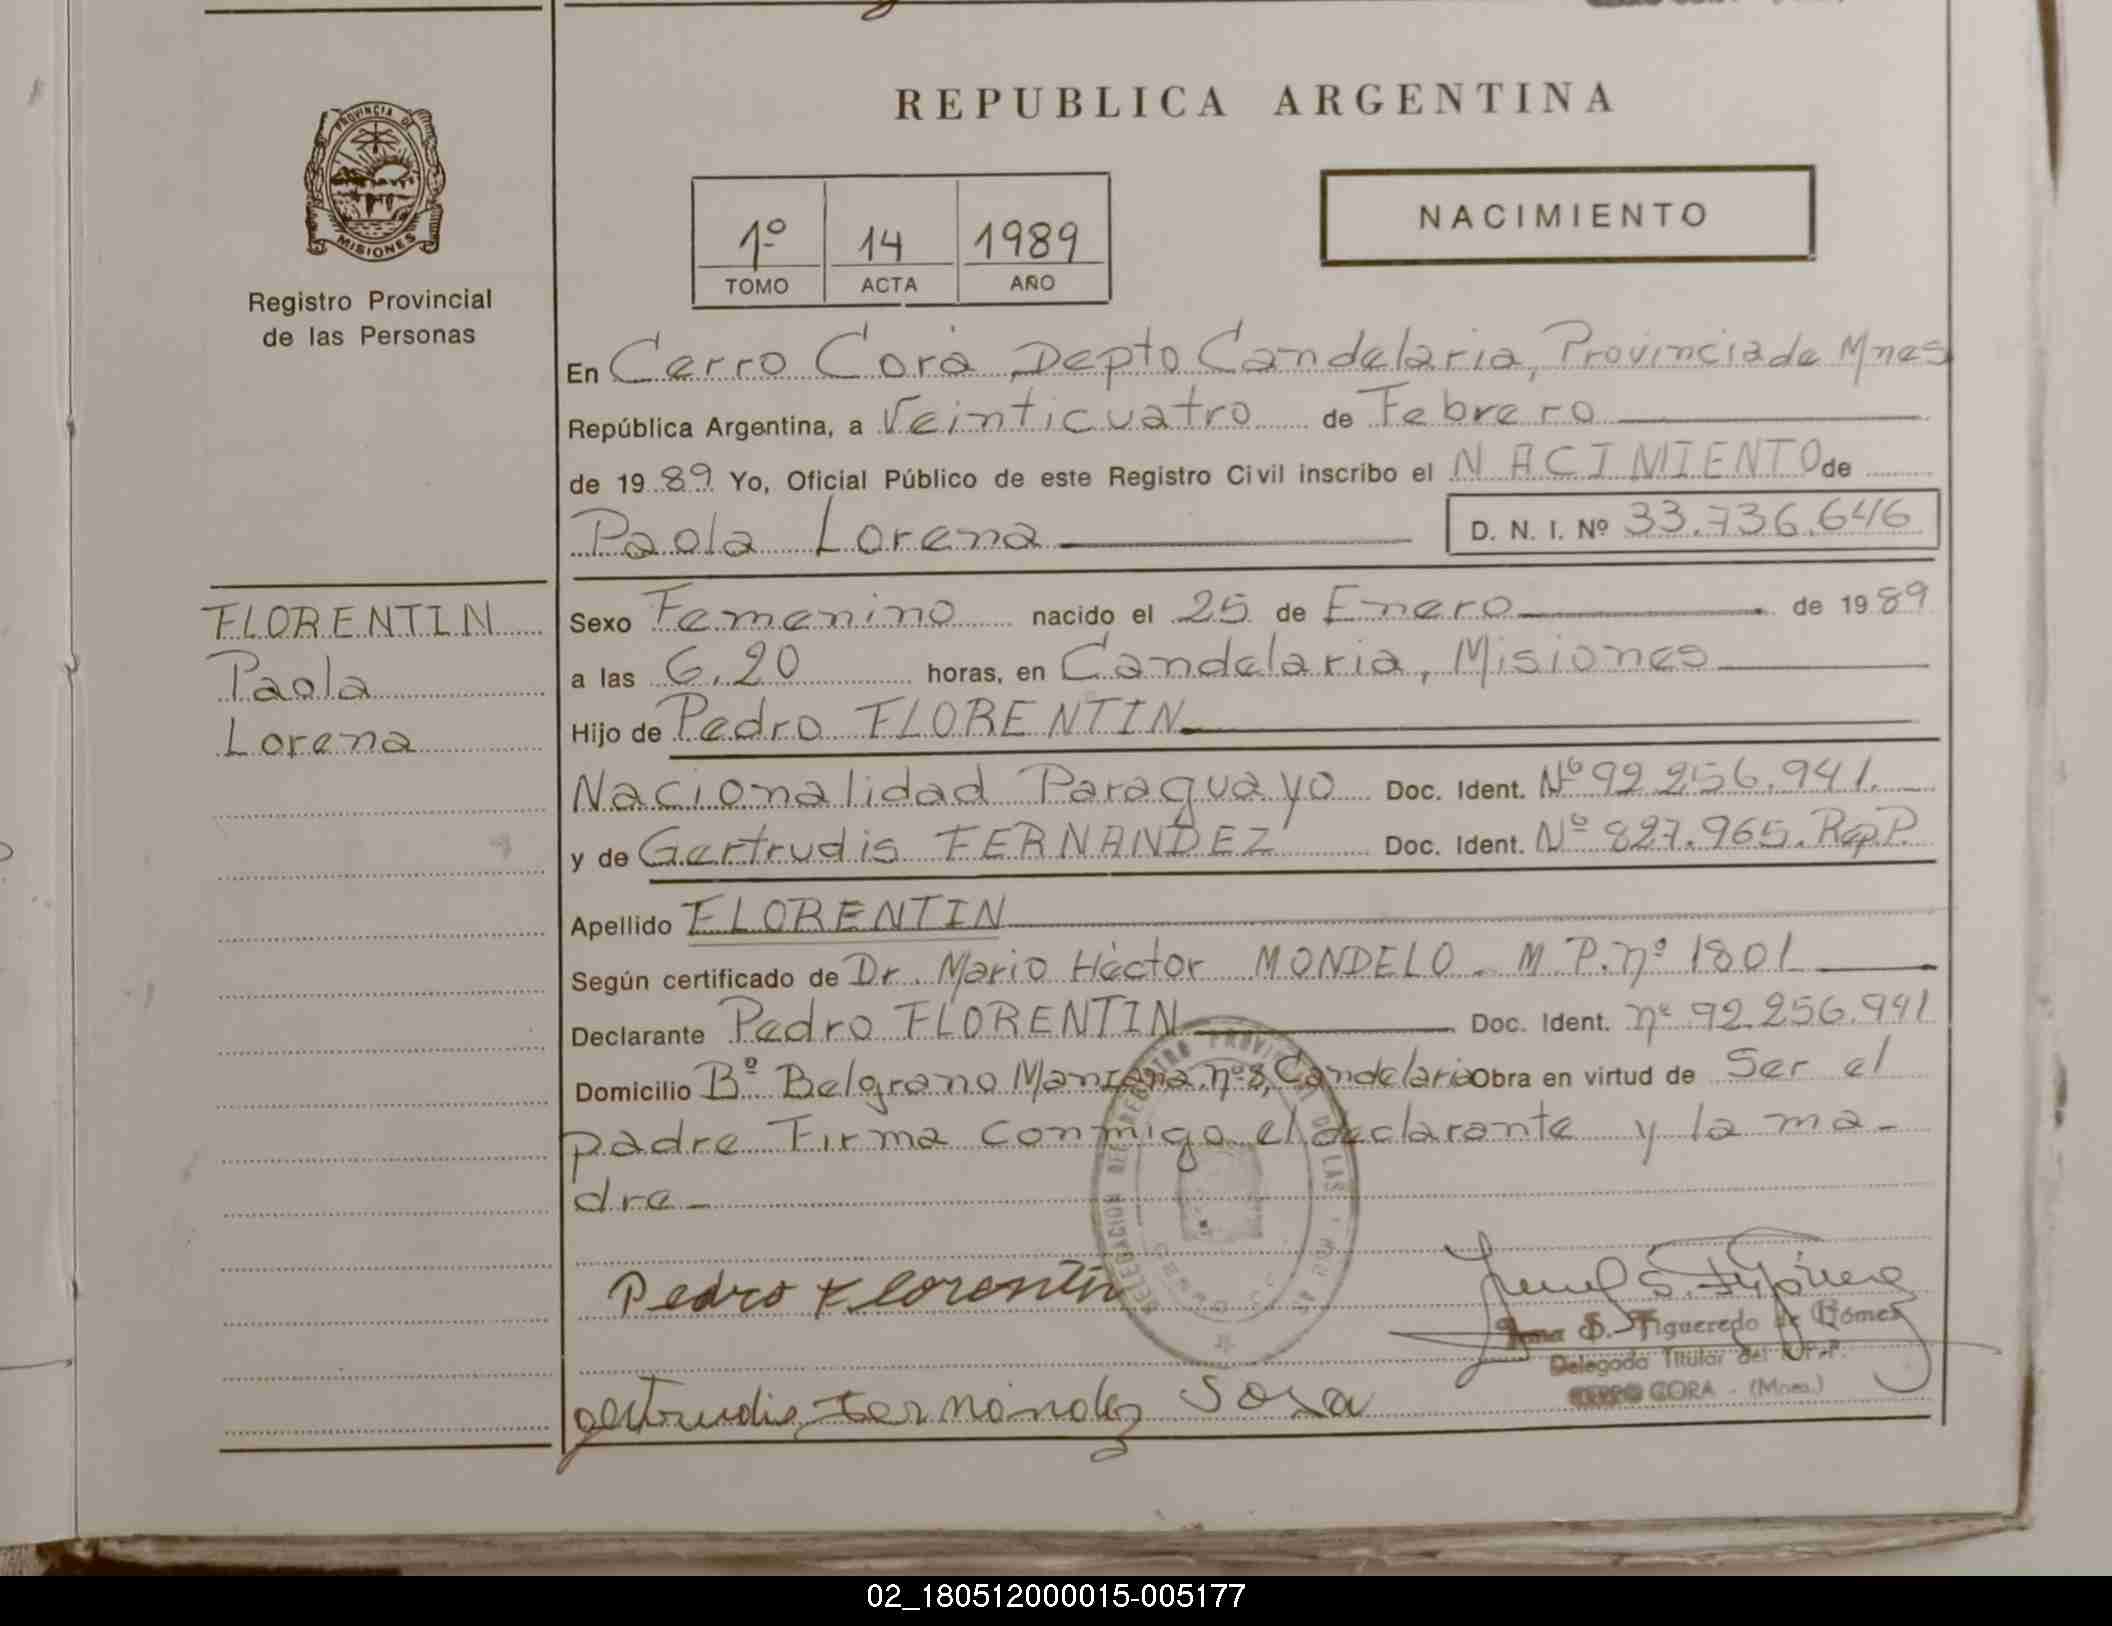 REPUBLICA ARGENTINA
PROVINCIA DE MISIONES
Registro Provincial
de las Personas
1º 14 1989
TOMO ACTA AÑO
NACIMIENTO
En Cerro Corá, Depto Candelaria, Provincia de Mnes
República Argentina, a Veinticuatro de Febrero
de 1989 Yo, Oficial Público de este Registro Civil inscribo el NACIMIENTO de
Paola Lorena D. N. I. Nº 33.736.646
FLORENTIN
Paola
Lorena
Sexo Femenino nacido el 25 de Enero de 1989
a las 6,20 horas, en Candelaria, Misiones
Hijo de Pedro FLORENTIN
Nacionalidad Paraguayo Doc. Ident. Nº 92.256.941.
y de Gertrudis FERNANDEZ Doc. Ident. Nº 827.965. Rep.P.
Apellido FLORENTIN
Según certificado de Dr. Mario Héctor MONDELO - M.P. nº 1801
Declarante Pedro FLORENTIN Doc. Ident. nº 92.256.941
Domicilio Bº Belgrano Manzana nº 8, Candelaria Obra en virtud de Ser el
padre Firma conmigo el declarante y la ma-
dre-
Pedro Florentin
Irma S. Figueredo de Gómez
Delegada Titular del R.P.P.
CERRO CORA - (Mnes.)
gertrudis fernández Sosa
02_180512000015-005177